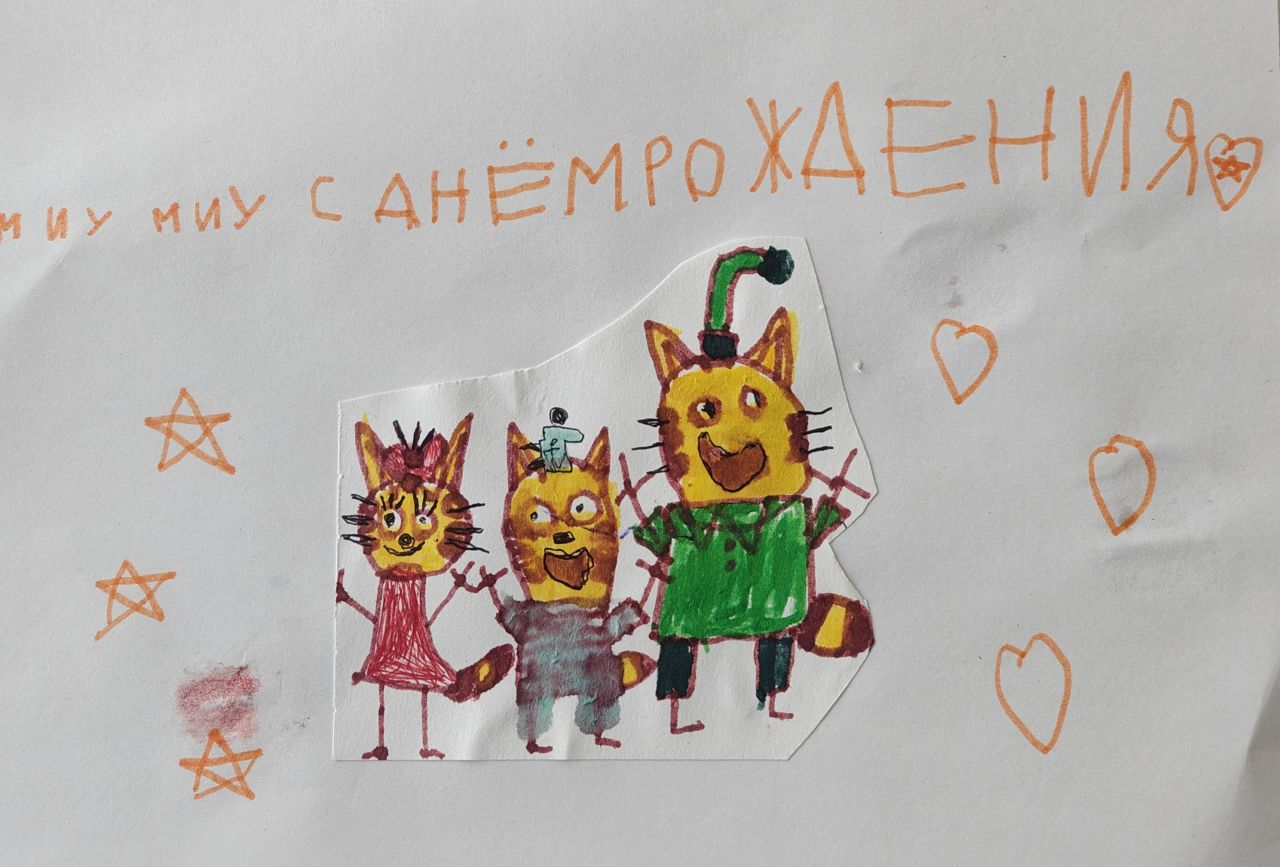 МИУ МИУ С ДНЁМ РОЖДЕНИЯ